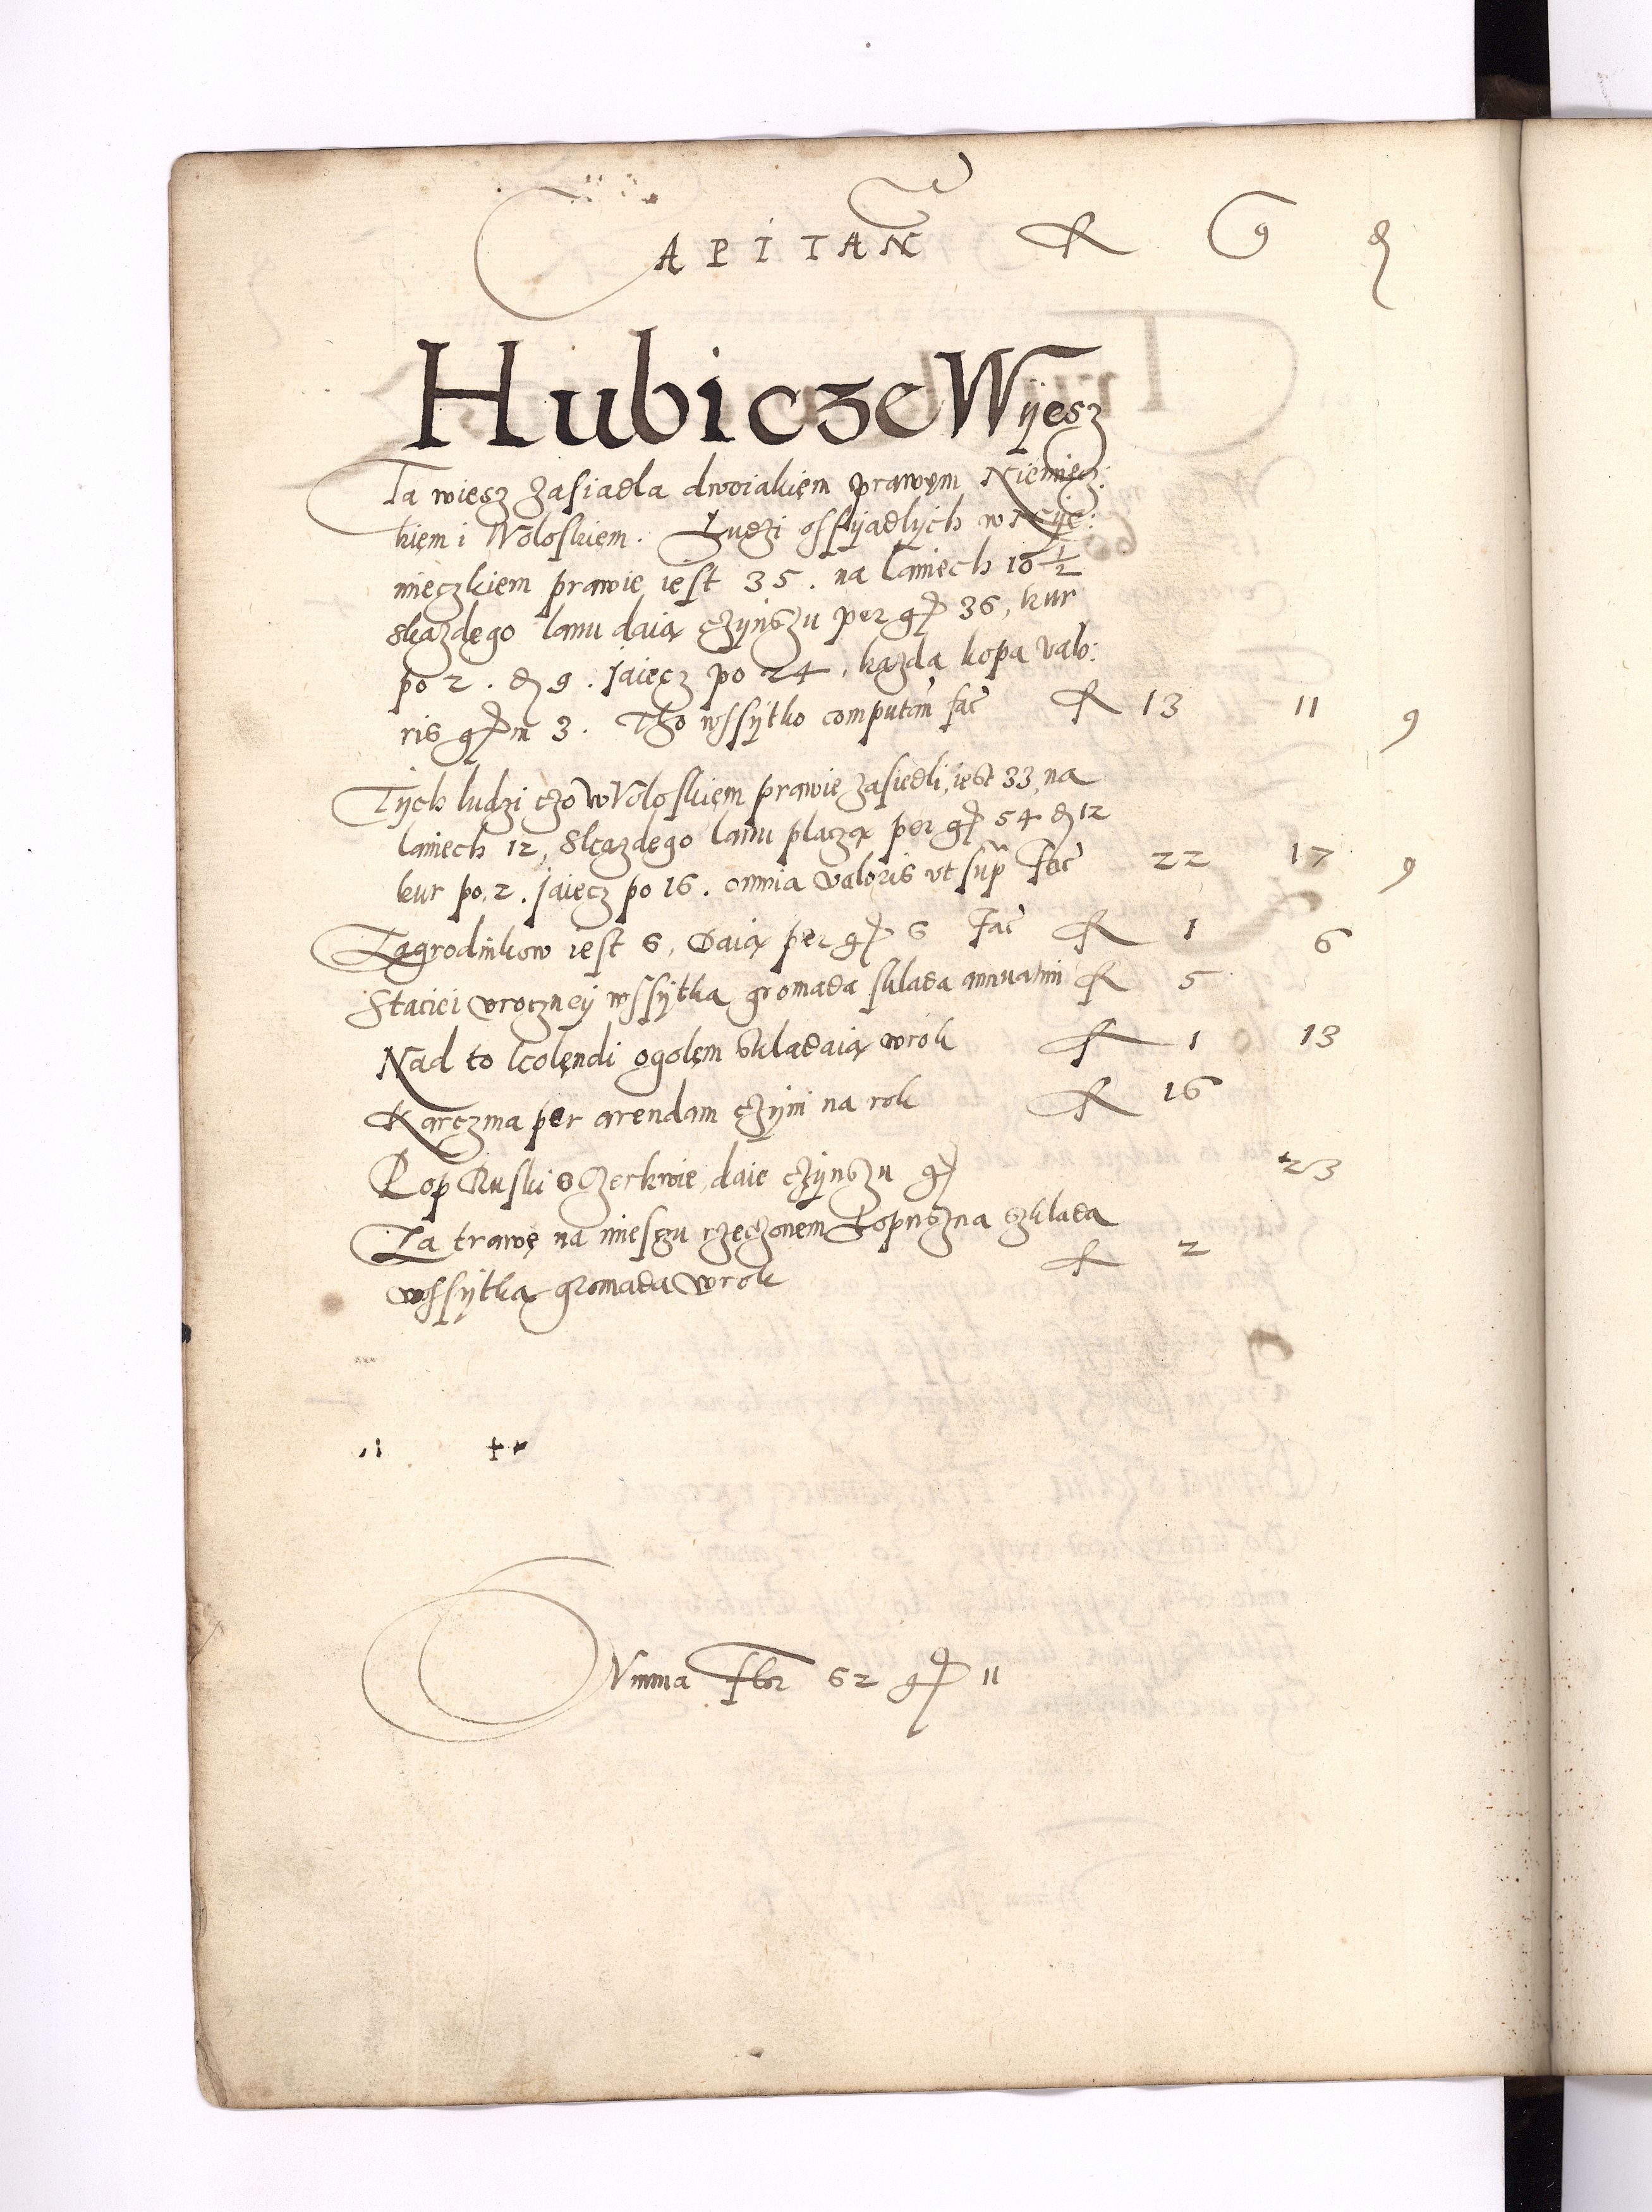 CAPITAN fl g d
Hubicze Wÿesz
Ta wiesz zasiadla dwoiakięm prawęm Niemięcz:
kięm i Wołoskiem. Ludzi ossÿadlych w Nÿe:
mieczkiem prawie iest 35. na laniech 10 1/2
Skazdego lanu daią czÿnszu per gr 36, kur
po 2. d 9. jaiecz po 24. kazda kopa valo:
ris grm 3. Tho wssÿtko computan fac fl 13 11 9
Tÿch ludzi czo w Wołoskięm prawie zasiedli, iest 33, na
laniech 12, Skazdego lanu placzą per gr 54 d 12
kur po 2. jaiecz po 16. omnia valoris vt sup Fac 22 17 9
Zagrodnikow iest 6, Daią per gr 6 Fac fl 1 6
Staciei vroczneÿ wssÿtka gromada sklada annuatim fl 5
Nad to kolęndi ogołem skladaią wrok fl 1 13
Karczma per arendam czÿni na rok fl 16
Pop Ruski o Czerkwie, daie czÿnszu gr 23
Za trawę na mieszu rzeczonem Lopuszna szklada
wssÿtka gromada w rok fl 2
Summa Flor 62 gr 11